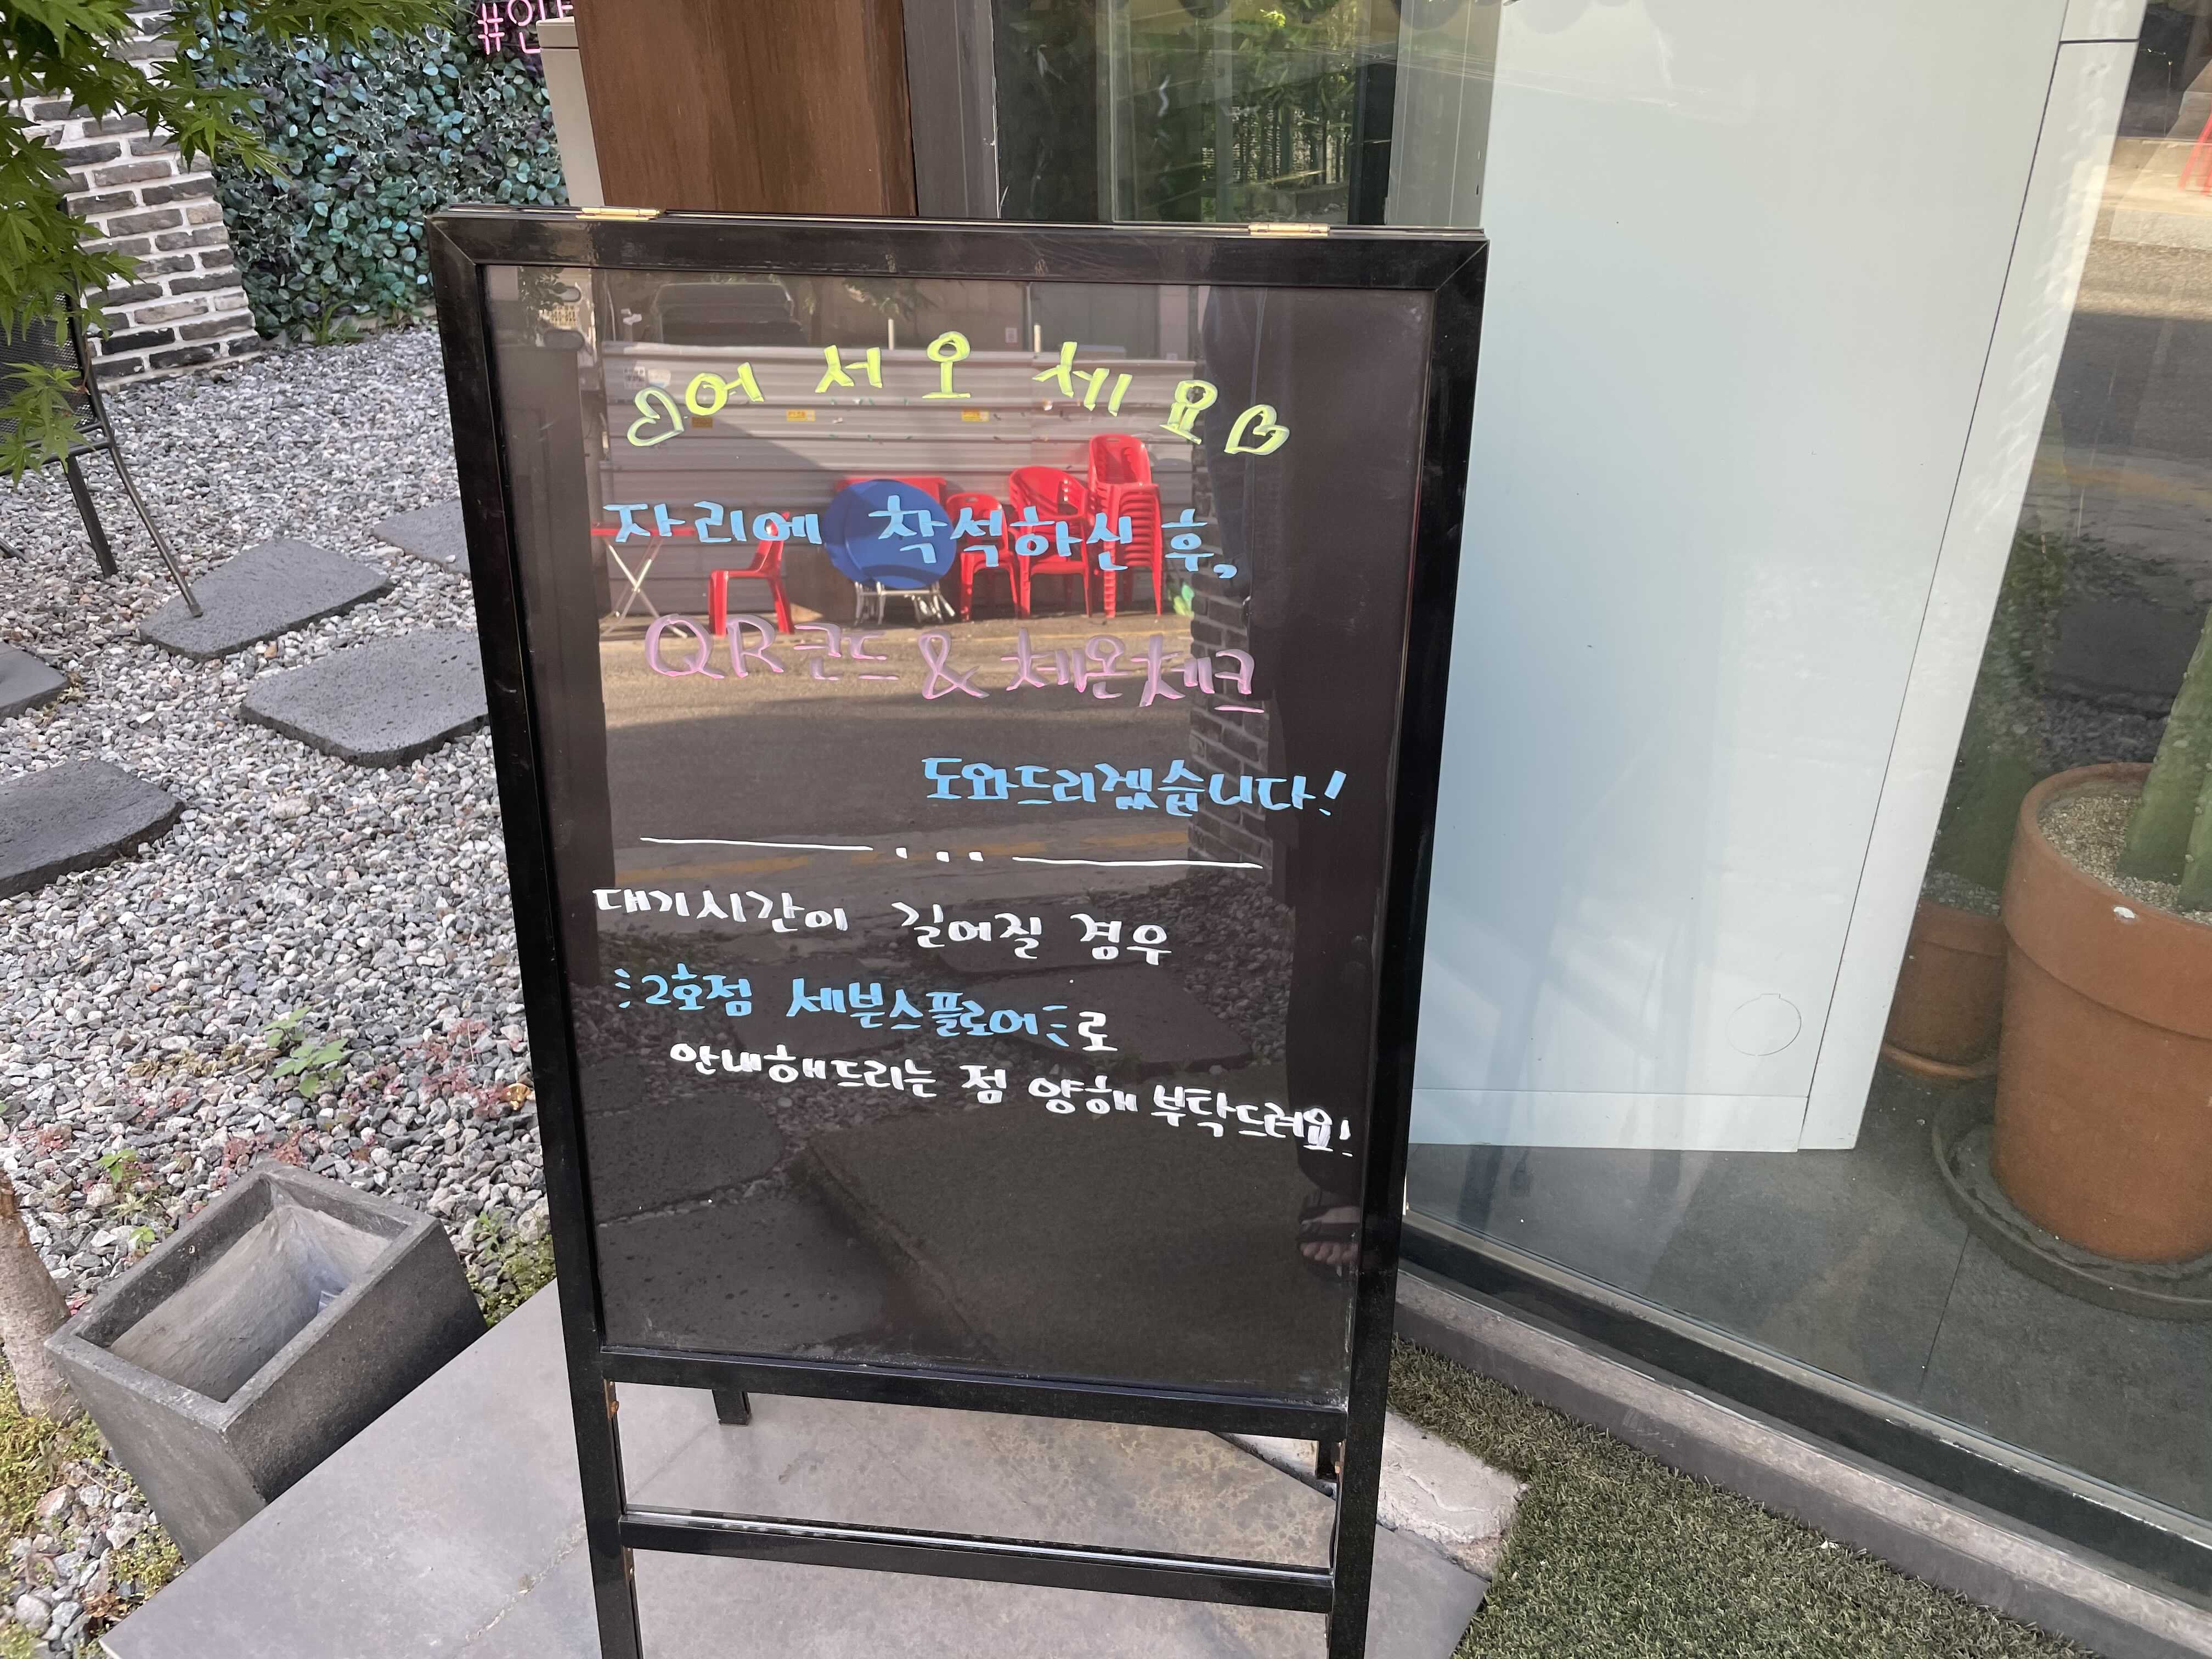 ♡어서오세요♡
자리에 착석하신 후,
QR코드 & 체온체크
도와드리겠습니다!
대기시간이 길어질 경우
2호점 세븐스플로어로
안내해드리는 점 양해 부탁드려요!